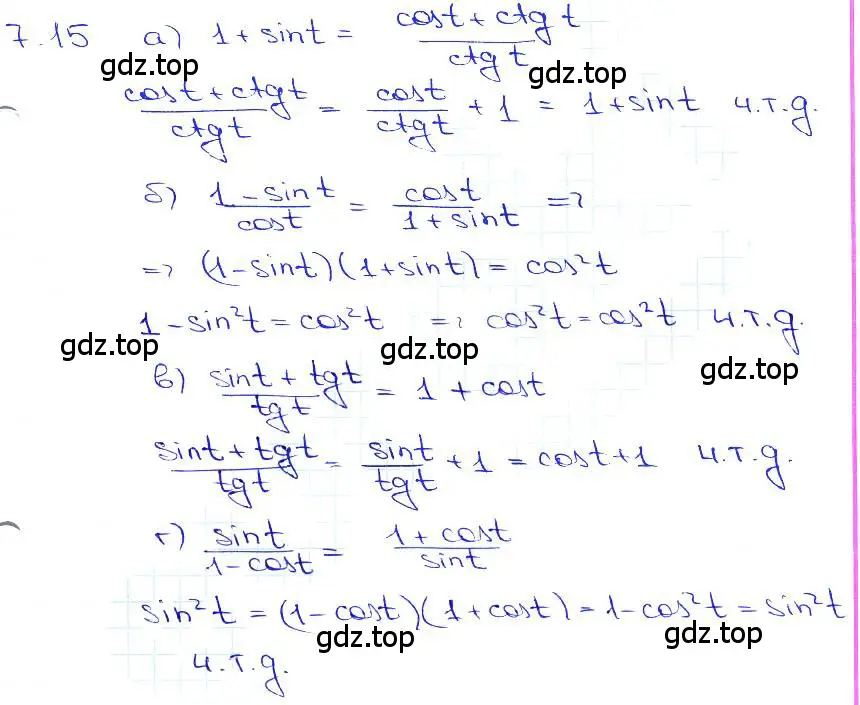 7.15 а) 1 + sint = (cost + ctg t)/(ctg t)
gdz.top gdz.top
(cost + ctgt)/(ctgt) = cost/ctgt + 1 = 1 + sint ч.т.д.
б) (1 - sint)/cost = cost/(1 + sint) =>
=> (1-sint)(1+sint) = cos²t
1 - sin²t = cos²t => cos²t = cos²t ч.т.д.
gdz.top gdz.top gdz.top
в) (sint + tgt)/(tgt) = 1 + cost
(sint + tgt)/(tgt) = sint/tgt + 1 = cost + 1 ч.т.д.
г) sint/(1 - cost) = (1 + cost)/sint
sin²t = (1 - cost)(1 + cost) = 1 - cos²t = sin²t
gdz.top gdz.top
ч.т.д.